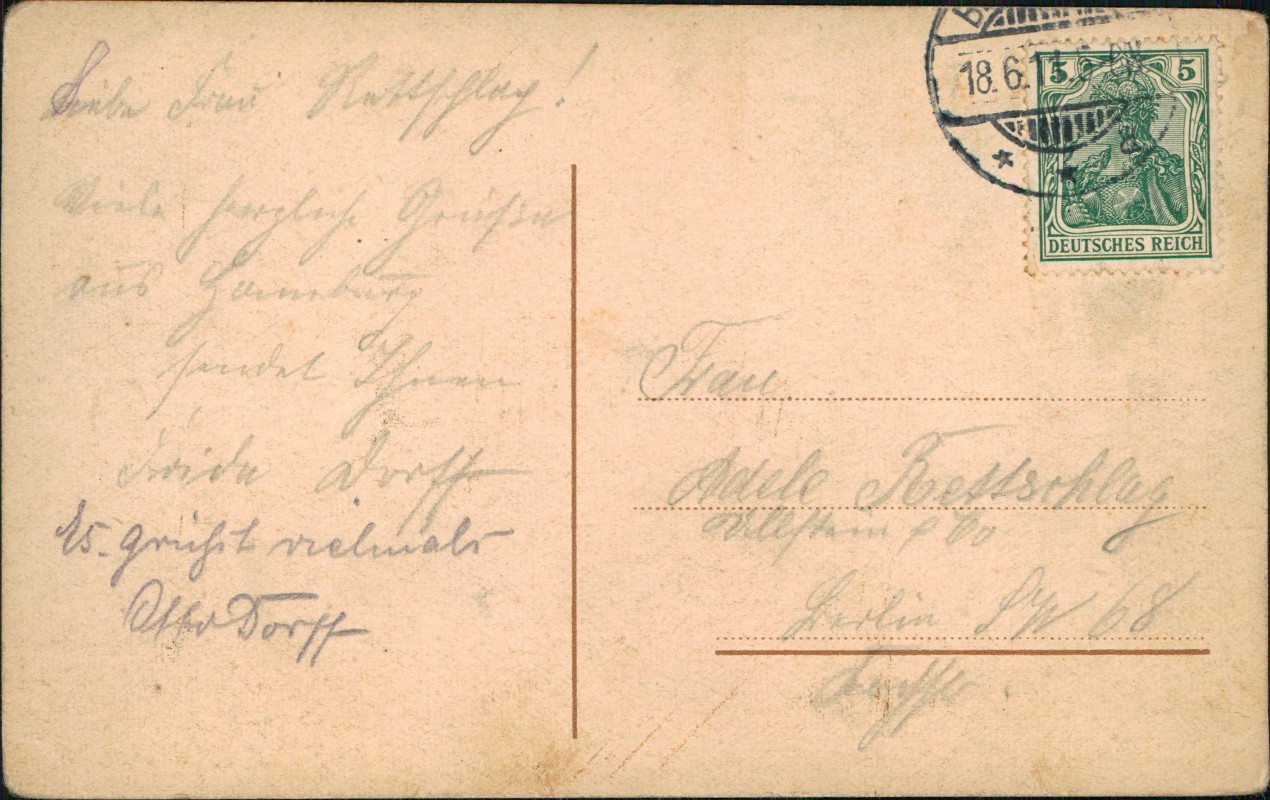 Liebe Frau Rettschlag!
Viele herzliche Grüße
aus
sendet Ihnen
Frida Dorff
Es grüßt vielmals
Otto Dorff
18.6.1
5 5
DEUTSCHES REICH
Frau
Adele Rettschlag
Ullstein & Co
Berlin SW 68